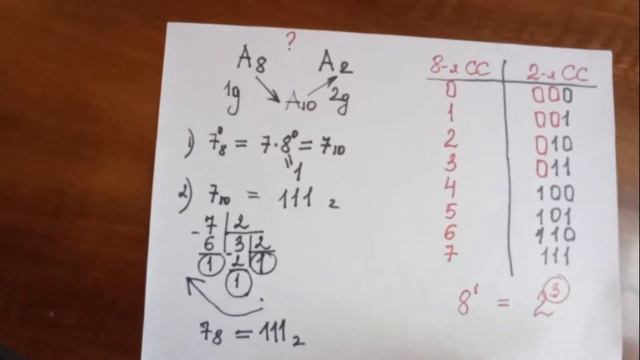 ?
A₈ A₂
1g A₁₀ 2g
1) 7⁰₈ = 7·8⁰ = 7₁₀
"
1
2) 7₁₀ = 111₂
- 7 | 2
6 | - 3 | 2
1 2 1
1
7₈ = 111₂
8-я СС 2-я СС
0 000
1 001
2 010
3 011
4 100
5 101
6 110
7 111
8¹ = 2³